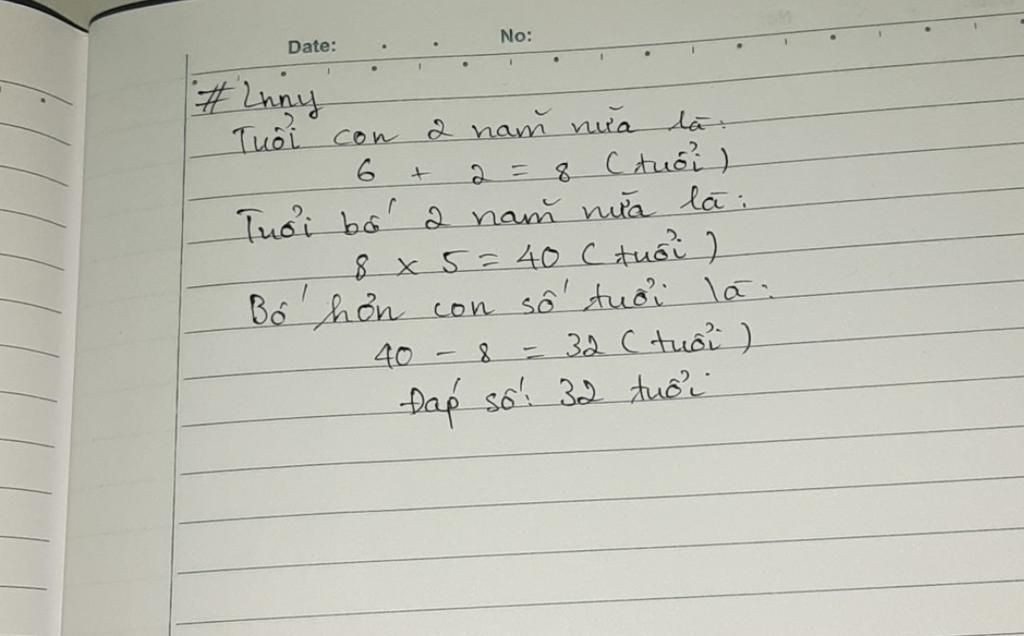 Date: No:
# Lnny
Tuổi con 2 năm nữa là:
6 + 2 = 8 (tuổi)
Tuổi bố 2 năm nữa là:
8 x 5 = 40 (tuổi)
Bố hơn con số tuổi là:
40 - 8 = 32 (tuổi)
Đáp số: 32 tuổi